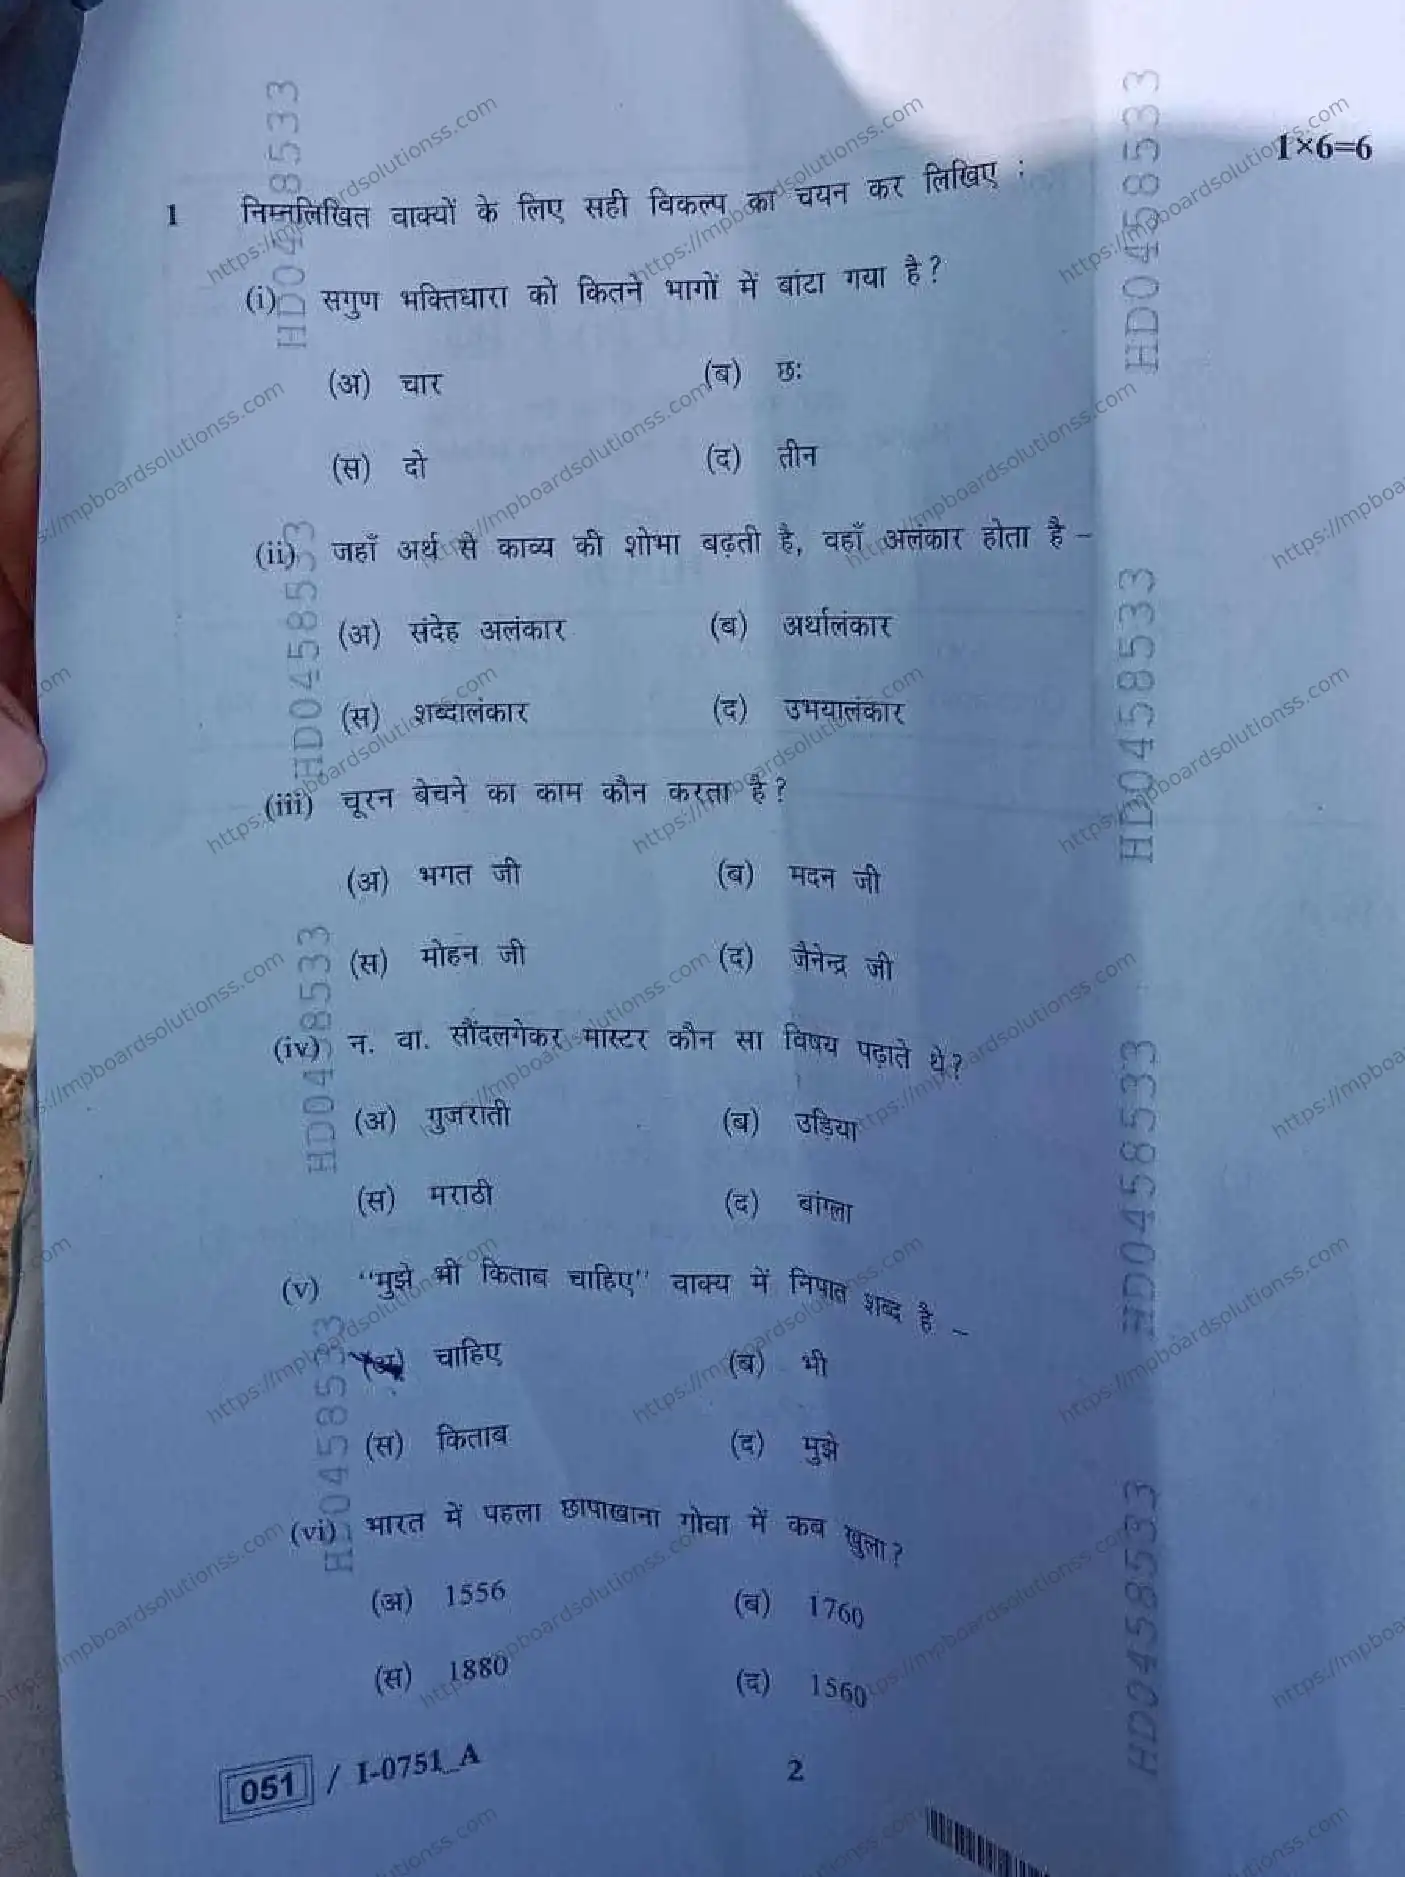 1×6=6
1 निम्नलिखित वाक्यों के लिए सही विकल्प का चयन कर लिखिए :
(i) सगुण भक्तिधारा को कितने भागों में बांटा गया है?
(अ) चार (ब) छः
(स) दो (द) तीन
(ii) जहाँ अर्थ से काव्य की शोभा बढ़ती है, वहाँ अलंकार होता है –
(अ) संदेह अलंकार (ब) अर्थालंकार
(स) शब्दालंकार (द) उभयालंकार
(iii) चूरन बेचने का काम कौन करता है?
(अ) भगत जी (ब) मदन जी
(स) मोहन जी (द) जैनेन्द्र जी
(iv) न. वा. सौंदलगेकर मास्टर कौन सा विषय पढ़ाते थे?
(अ) गुजराती (ब) उड़िया
(स) मराठी (द) बांग्ला
(v) "मुझे भी किताब चाहिए" वाक्य में निपात शब्द है –
(अ) चाहिए (ब) भी
(स) किताब (द) मुझे
(vi) भारत में पहला छापाखाना गोवा में कब खुला?
(अ) 1556 (ब) 1760
(स) 1880 (द) 1560
051 / I-0751_A 2
HD0458533
https://mpboardsolutionss.com